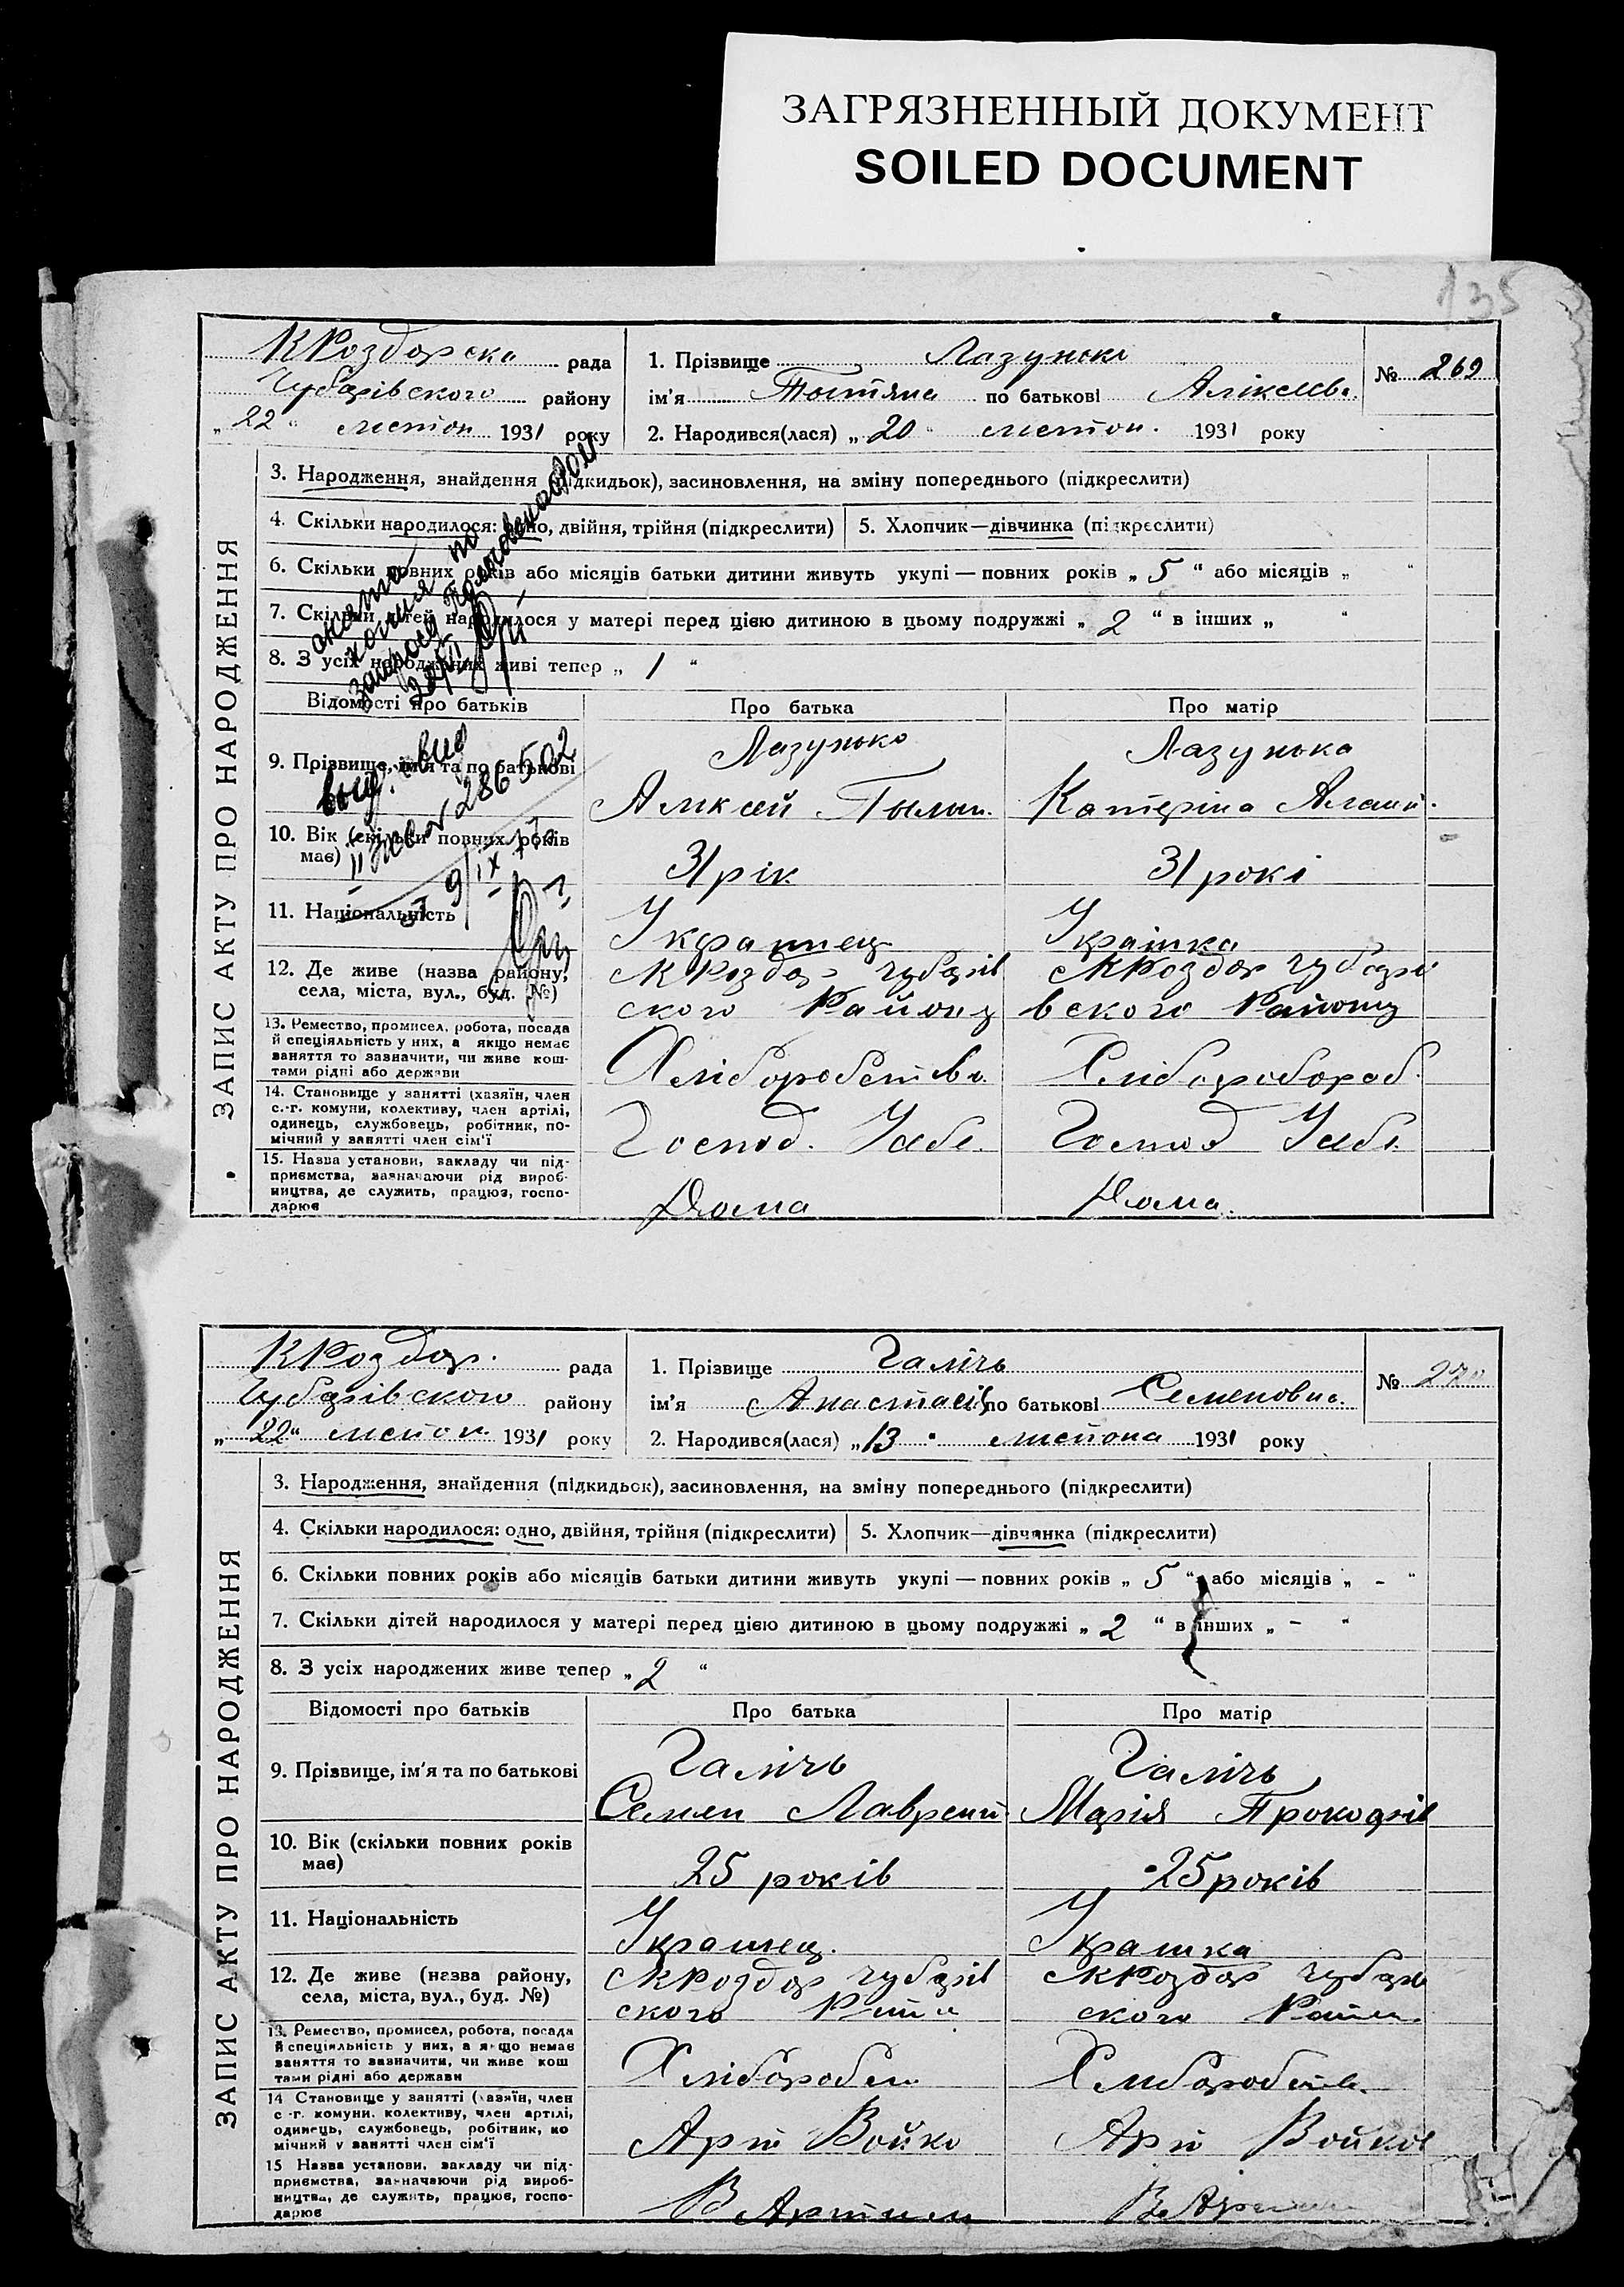 ЗАГРЯЗНЕННЫЙ ДОКУМЕНТ
SOILED DOCUMENT
135
ЗАПИС АКТУ ПРО НАРОДЖЕННЯ
КРоздорска рада
Чубарівского району
„22“ листоп 1931 року
1. Прізвище Лазунько
ім'я Тотяна по батькові Аліксієв.
№ 269
2. Народився(лася) „20“ листоп. 1931 року
3. Народження, знайдення (підкидьок), засиновлення, на зміну попереднього (підкреслити)
4. Скільки народилося: одно, двійня, трійня (підкреслити) 5. Хлопчик—дівчинка (підкреслити)
6. Скільки повних років або місяців батьки дитини живуть укупі—повних років „5“ або місяців „ “
7. Скільки дітей народилося у матері перед цією дитиною в цьому подружжі „2“ в інших „ “
8. З усіх народжених живі тепер „1“
Відомості про батьків Про батька Про матір
9. Прізвище, ім'я та по батькові
Лазунько Лазунька
Аликсей Катеріна
выд. свид
№ 286502
10. Вік (скільки повних років
має)
31 рік 31 рокі
9/IX
11. Національність
Украинец Украінка
12. Де живе (назва району,
села, міста, вул., буд. №)
с КРоздор Чубарів с КРоздор Чубарі
ского Району вского Району
13. Ремество, промисел, робота, посада
й спеціяльність у них, а якщо немає
заняття то зазначити, чи живе кош-
тами рідні або держави
Хліборобство. Хлібороб.
14. Становище у занятті (хазяїн, член
с.-г. комуни, колективу, член артілі,
одинець, службовець, робітник, по-
мічний у занятті член сім'ї
Господ. Господ
15. Назва установи, закладу чи під-
приємства, зазначаючи рід вироб-
ництва, де служить, працює, госпо-
дарює
Дома Дома.
ЗАПИС АКТУ ПРО НАРОДЖЕННЯ
КРоздор. рада
Чубарівского району
„22“ листоп 1931 року
1. Прізвище Галічь
ім'я Анастасія по батькові Семеновна.
№ 270
2. Народився(лася) „13“ листопа 1931 року
3. Народження, знайдення (підкидьок), засиновлення, на зміну попереднього (підкреслити)
4. Скільки народилося: одно, двійня, трійня (підкреслити) 5. Хлопчик—дівчинка (підкреслити)
6. Скільки повних років або місяців батьки дитини живуть укупі—повних років „5“ або місяців „-“
7. Скільки дітей народилося у матері перед цією дитиною в цьому подружжі „2“ в інших „-“
8. З усіх народжених живе тепер „2“
Відомості про батьків Про батька Про матір
9. Прізвище, ім'я та по батькові
Галічь Галічь
Семен Лаврент. Марія Прокофів
10. Вік (скільки повних років
має)
25 років 25 років
11. Національність
Украинец. Украинка
12. Де живе (назва району,
села, міста, вул., буд. №)
с КРоздор Чубарів с КРоздор Чубарів
ского Район ского Район
13. Ремество, промисел, робота, посада
й спеціяльність у них, а якщо немає
заняття то зазначити, чи живе кош
тами рідні або держави
Хлібороб Хлибороб
14 Становище у занятті (хазяїн, член
с-г. комуни, колективу, член артілі,
одинець, службовець, робітник, по
мічний у занятті член сім'ї
Арт Войко Арт Войков
15 Назва установи, закладу чи під-
приємства, зазначаючи рід вироб-
ництва, де служить, працює, госпо-
дарює
В Артили В Арти